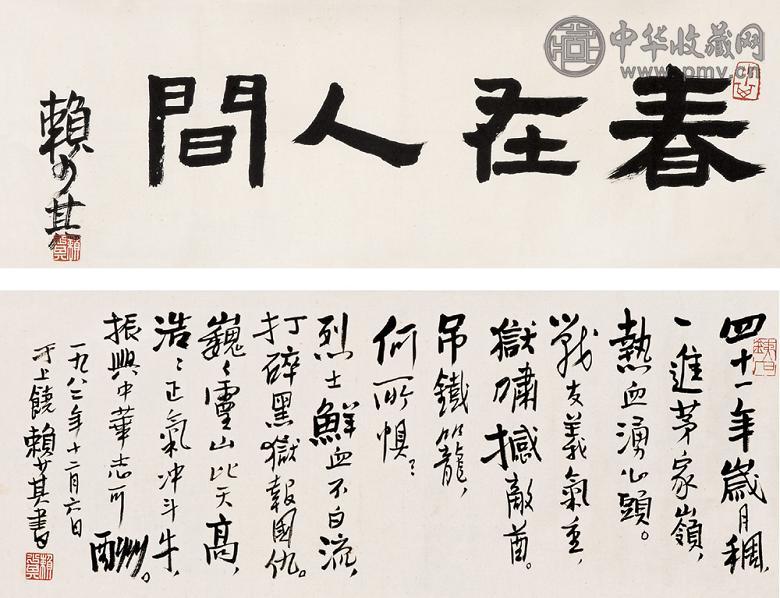 春在人間
賴少其
中华收藏网
www.pmv.cn
四十一年歲月稠，
一進茅家嶺，
熱血湧心頭。
戰友義氣重，
獄中嘯撼敵酋。
吊鐵籠，
何所惧？
烈士鮮血不白流，
打碎黑獄報國仇。
巍〻靈山比天高，
浩〻正氣冲斗牛，
振興中華志可酬。
一九八二年十二月六日
于上饒賴少其書